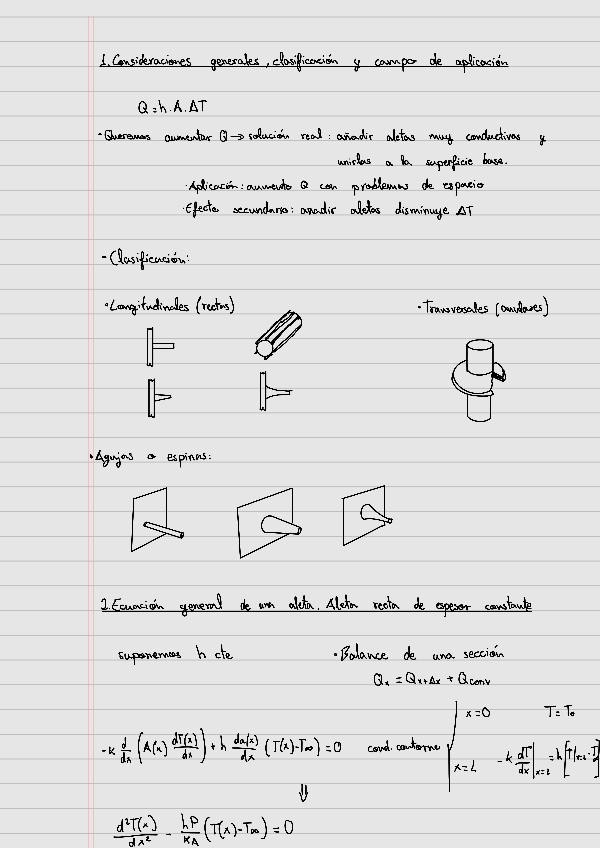 1. Consideraciones generales, clasificación y campo de aplicación
Q = h.A.ΔT
· Queremos aumentar Q → solución real: añadir aletas muy conductivas y
unirlas a la superficie base.
· Aplicación: aumento Q con problemas de espacio
· Efecto secundario: anadir aletas disminuye ΔT
- Clasificación:
· Longitudinales (rectas)
· Transversales (anulares)
· Agujas o espinas:
2. Ecuación general de una aleta. Aleta recta de espesor constante
suponemos h cte
· Balance de una sección
Qx = Qx+Δx + Qconv
-k d/dx (A(x) dT(x)/dx) + h da(x)/dx (T(x)-T∞) = 0
cond. contorno
x=0 T=T₀
x=L -k dT/dx|x=L = h[T|x=L - T
⇓
d²T(x)/dx² - hP/KA (T(x)-T∞) = 0